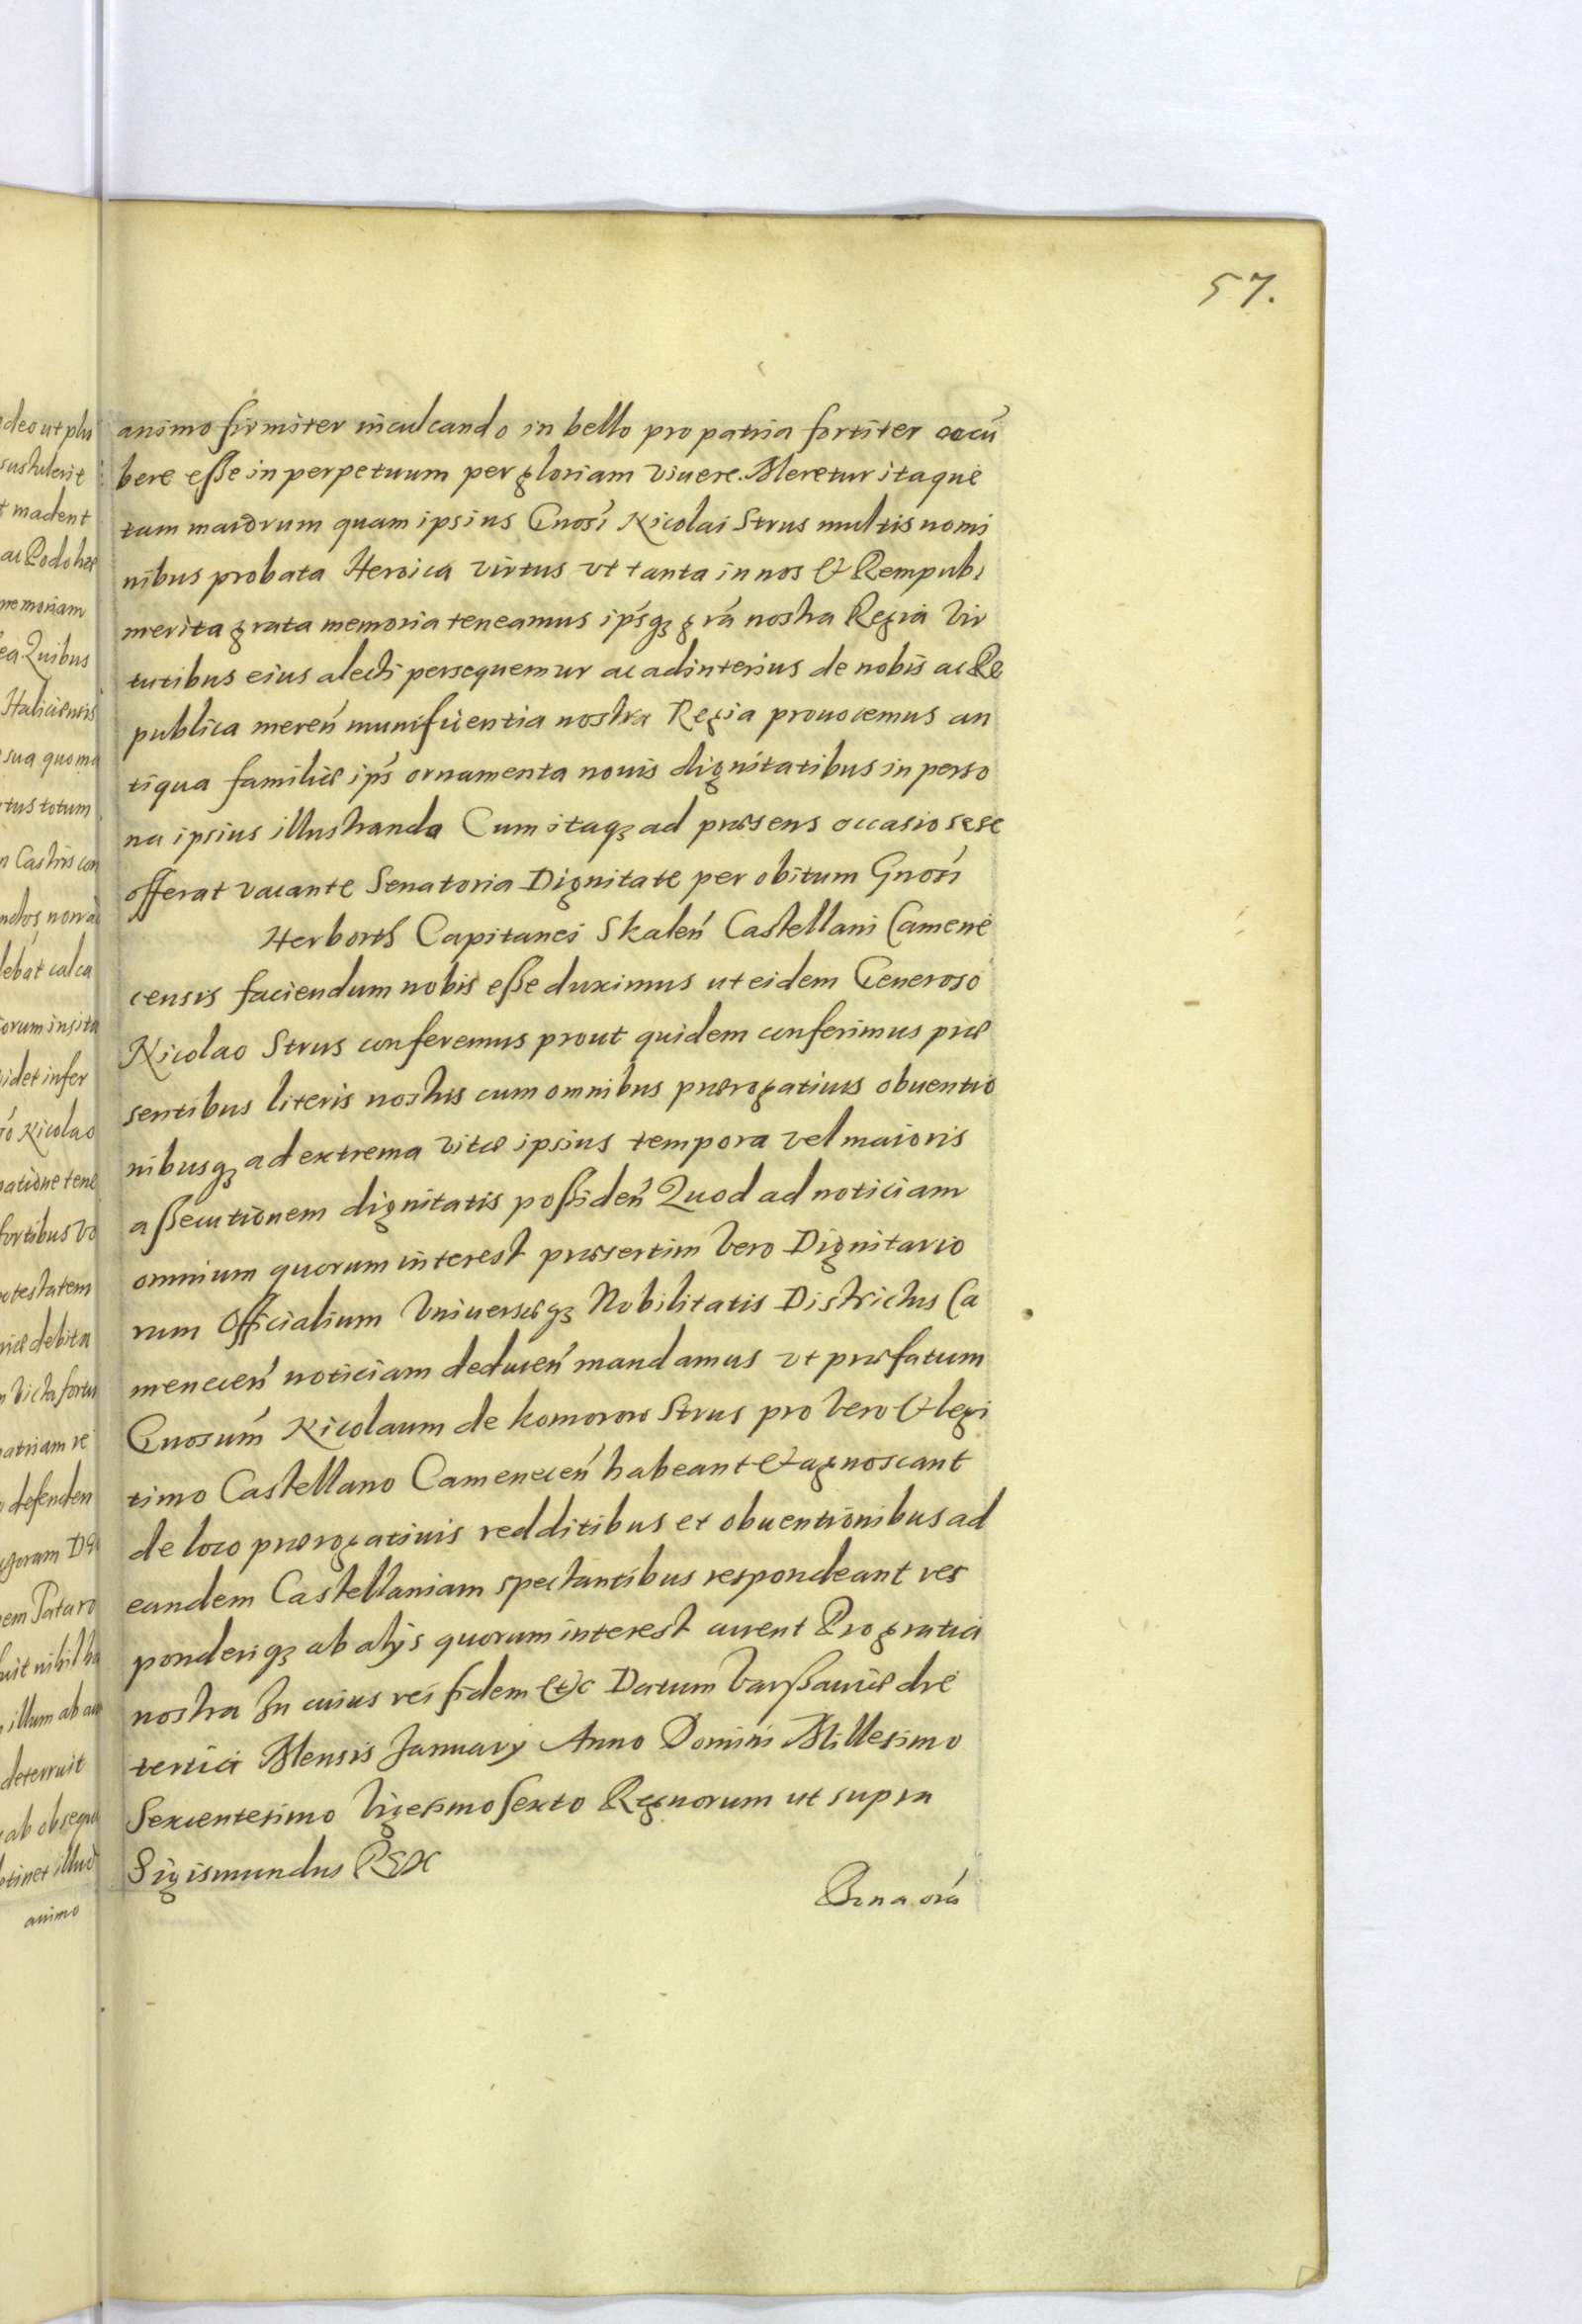 57.
animo firmiter inculcando in bello pro patria fortiter occū
bere eſse in perpetuum per gloriam viuere. Meretur itaque
tam maiorum quam ipsius Gnosi Nicolai Strus multis nomi
nibus probata Heroica virtus vt tanta in nos & Rempub:
merita grata memoria teneamus ipsqꝫ gra nostra Regia Vir
tutibus eius alecti persequemur ac ad interius de nobis ac Re
publica meren munificentia nostra Regia prouocemus an
tiqua familiæ ips ornamenta nouis dignitatibus in perso
na ipsius illustranda Cum itaqꝫ ad præsens occasio sese
offerat vacante Senatoria Dignitate per obitum Gnosi
Herborth Capitanei Skalen Castellani Camene
censis faciendum nobis eſse duximus ut eidem Generoso
Nicolao Strus conferemus prout quidem conferimus præ
sentibus literis nostris cum omnibus prærogatiuis obuentio
nibusqꝫ ad extrema vitæ ipsius tempora vel maioris
aſsecutionem dignitatis poſsiden Quod ad noticiam
omnium quorum interest præsertim Vero Dignitario
rum Officialium Vniuersæqꝫ Nobilitatis Districtus Ca
menecen noticiam deducen mandamus vt præfatum
Gnosum Nicolaum de Komorow Strus pro Vero & legi
timo Castellano Camenecen habeant & agnoscant
de loco prærogatiuis redditibus et obuentionibus ad
eandem Castellaniam spectantibus respondeant res
ponderiqꝫ ab alijs quorum interest curent Pro gratia
nostra In cuius rei fidem &c Datum Varſsauiæ die
tertia Mensis January Anno Domini Millesimo
Sexcentesimo Vigesimo Sexto Regnorum ut supra
Sigismundus Rex
deo ut plu
sustulerit
madent
ac Podoliæ
memoriam
ea Quibus
Haliciensis
sua quo ma
tus totum
Castris con
lebat calca
orum insita
videt infer
Nicolao
ratione tene
fortibus vo
potestatem
debita
victa fortu
patriam re
defenden
nihil ha
illum ab
deterruit
ab obsequi
etinet illud
animo